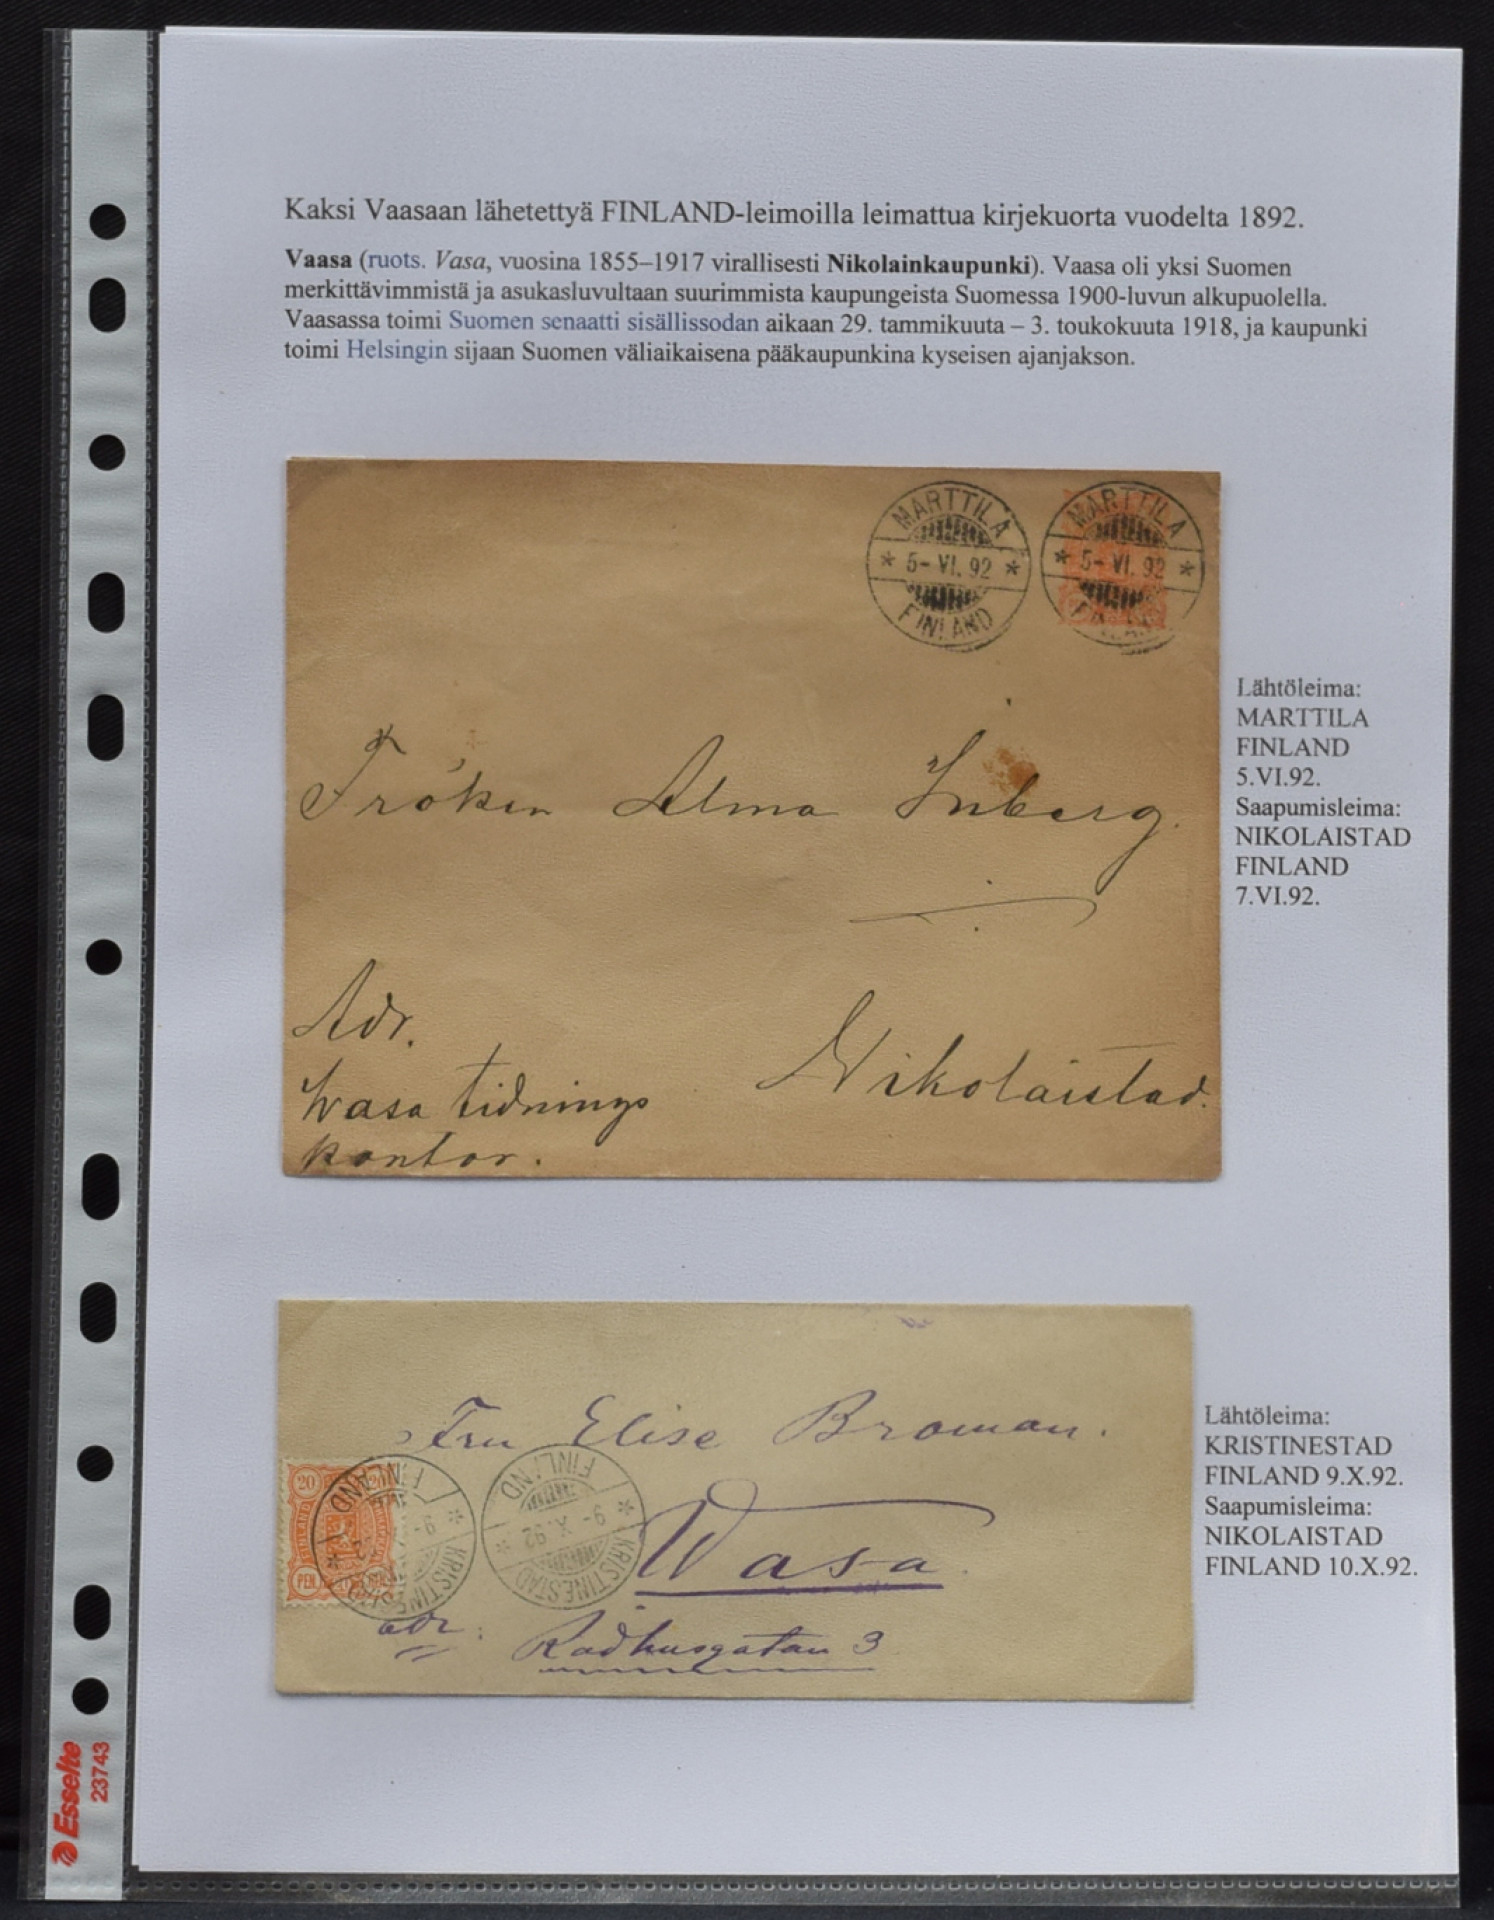 Kaksi Vaasaan lähetettyä FINLAND-leimoilla leimattua kirjekuorta vuodelta 1892.
Vaasa (ruots. Vasa, vuosina 1855–1917 virallisesti Nikolainkaupunki). Vaasa oli yksi Suomen
merkittävimmistä ja asukasluvultaan suurimmista kaupungeista Suomessa 1900-luvun alkupuolella.
Vaasassa toimi Suomen senaatti sisällissodan aikaan 29. tammikuuta – 3. toukokuuta 1918, ja kaupunki
toimi Helsingin sijaan Suomen väliaikaisena pääkaupunkina kyseisen ajanjakson.
MARTTILA
* 5- VI. 92 *
FINLAND
MARTTILA
* 5- VI. 92 *
FINLAND
Fröken Alma Inberg.
Adr.
Wasa tidnings
kontor.
Nikolaistad.
Lähtöleima:
MARTTILA
FINLAND
5.VI.92.
Saapumisleima:
NIKOLAISTAD
FINLAND
7.VI.92.
Fru Elise Broman.
Wasa
adr: Rådhusgatan 3
20 20
FINLAND
PEN
KRISTINESTAD
9- X. 92
FINLAND
KRISTINESTAD
* 9- X. 92 *
FINLAND
Lähtöleima:
KRISTINESTAD
FINLAND 9.X.92.
Saapumisleima:
NIKOLAISTAD
FINLAND 10.X.92.
Esselte
23743